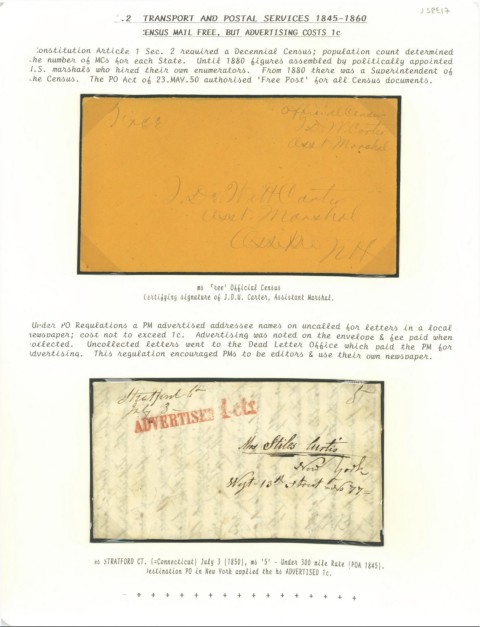 .2 TRANSPORT AND POSTAL SERVICES 1845-1860
CENSUS MAIL FREE, BUT ADVERTISING COSTS 1c
Constitution Article 1 Sec. 2 required a Decennial Census; population count determined
the number of MCs for each State. Until 1880 figures assembled by politically appointed
U.S. marshals who hired their own enumerators. From 1880 there was a Superintendent of
the Census. The PO Act of 23.MAY.50 authorised 'Free Post' for all Census documents.
Free
Official Census
J. D. W. Carter
Asst. Marshal
J. De Witt Carter
Asst. Marshal
Ossipee
NH
ms 'Free' Official Census
Certifying signature of J.D.W. Carter, Assistant Marshal.
Under PO Regulations a PM advertised addressee names on uncalled for letters in a local
newspaper; cost not to exceed 1c. Advertising was noted on the envelope & fee paid when
collected. Uncollected letters went to the Dead Letter Office which paid the PM for
advertising. This regulation encouraged PMs to be editors & use their own newspaper.
Stratford Ct
July 3
5
ADVERTISED 1 cts
Mrs Stiles Curtis
New York
West 13th Street No 77
ms STRATFORD CT. (=Connecticut) July 3 (1850), ms '5' - Under 300 mile Rate (POA 1845).
Destination PO in New York applied the hs ADVERTISED 1c.
+ + + + + + + + + + + + + + +